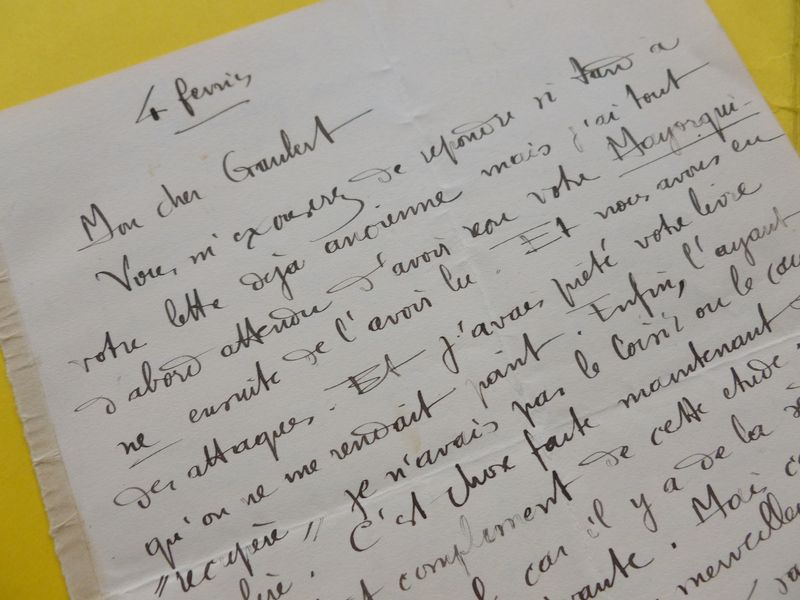 4 février
Mon cher Gaubert
Vous m'excuserez de répondre si tard à
votre lettre déjà ancienne mais j'ai tout
d'abord attendu d'avoir reçu votre Mayorqui-
ne ensuite de l'avoir lu. Et nous avons eu
des attaques. Et j'avais prêté votre livre
qu'on ne me rendait point. Enfin, l'ayant
"récupéré" je n'avais pas le loisir ou le
C'est chose faite maintenant
complément de cette étude
car il y a de la
Mais
merveilleu